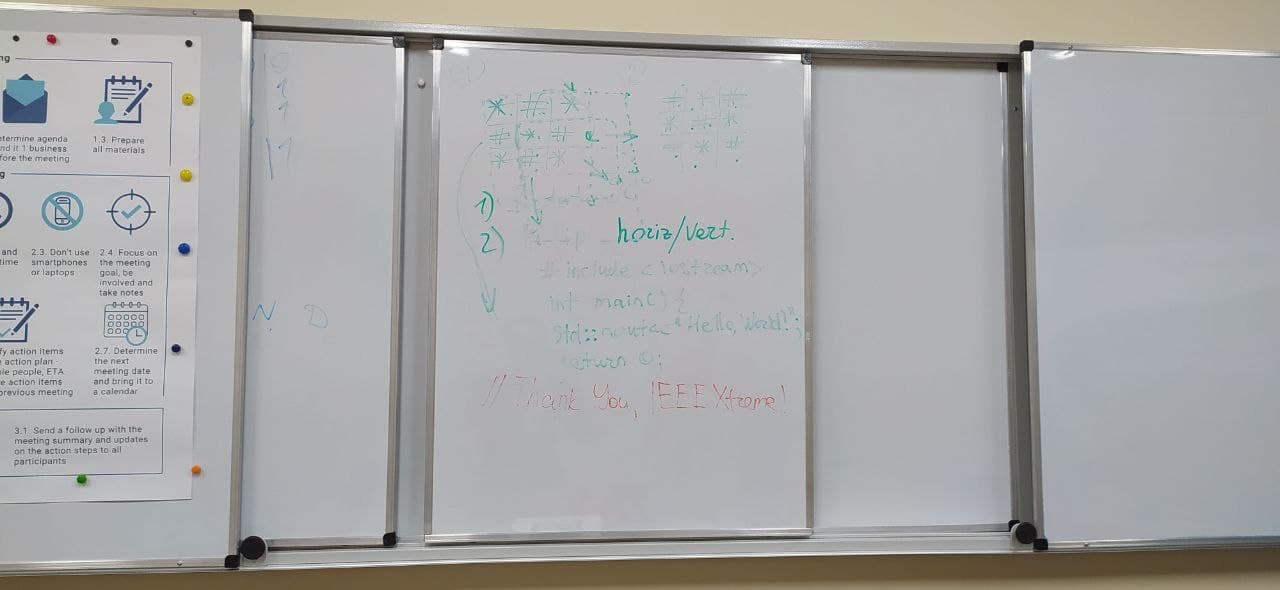 ng
etermine agenda
nd it 1 business
fore the meeting
1.3. Prepare
all materials
g
and
time
2.3. Don't use
smartphones
or laptops
2.4. Focus on
the meeting
goal, be
involved and
take notes
fy action items
e action plan -
le people, ETA
e action items
previous meeting
2.7. Determine
the next
meeting date
and bring it to
a calendar
3.1. Send a follow up with the
meeting summary and updates
on the action steps to all
participants
N D
* # *
# * #
* # *
# * #
* # *
# * #
1)
2) horiz/vert.
# include <iostream>
int main() {
std::cout<<"Hello, World!";
return 0;
// Thank You, IEEEXtreme!